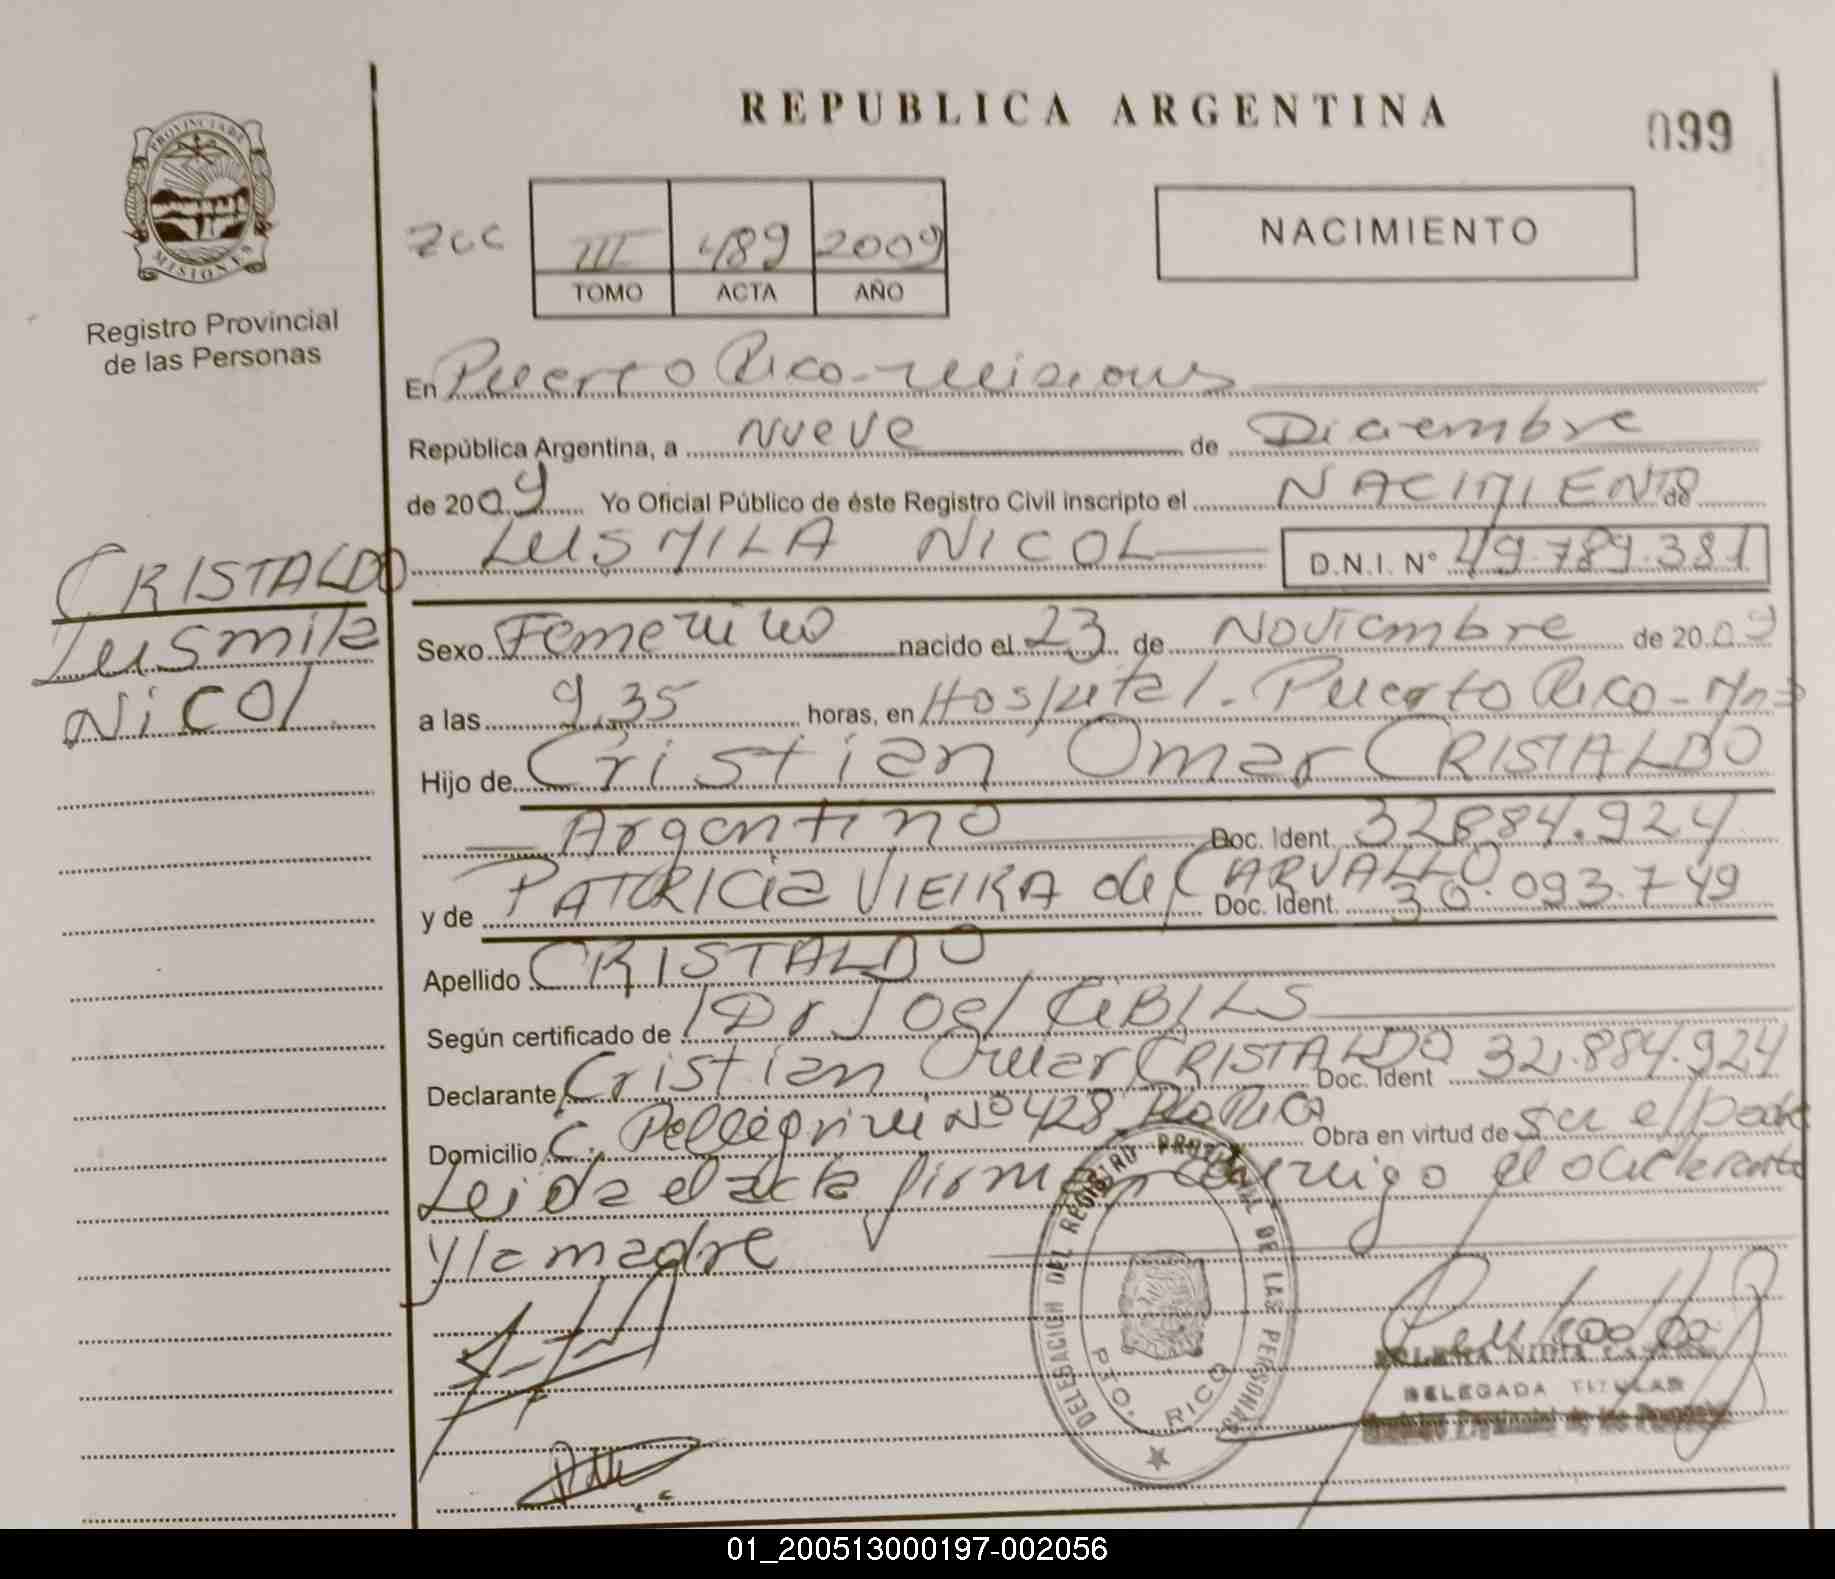 REPUBLICA ARGENTINA
099
PROVINCIA DE
MISIONES
Registro Provincial
de las Personas
NACIMIENTO
zcc III 489 2009
TOMO ACTA AÑO
En Puerto Rico - Misiones
República Argentina, a nueve de Diciembre
de 2009 Yo Oficial Público de éste Registro Civil inscripto el NACIMIENTO de
LUSMILA NICOL D.N.I. Nº 49.789.381
CRISTALDO
Lusmila
Nicol
Sexo Femenino nacido el 23 de Noviembre de 2009
a las 9,35 horas, en Hospital - Puerto Rico - Mns
Hijo de Cristian Omar CRISTALDO
Argentino Doc. Ident. 32884.924
y de PATRICIA VIEIRA de CARVALLO Doc. Ident. 30.093.749
Apellido CRISTALDO
Según certificado de Dr Joel
Declarante Cristian Omar CRISTALDO Doc. Ident 32.884.924
Domicilio C. Pellegrini Nº 428 Pto Rico Obra en virtud de su el padre
Leida el acta firma conmigo el declarante
y la madre
DELEGACION DEL REGISTRO PROVINCIAL DE LAS PERSONAS
PTO. RICO
NIDIA
DELEGADA TITULAR
Registro Provincial de las Personas
01_200513000197-002056